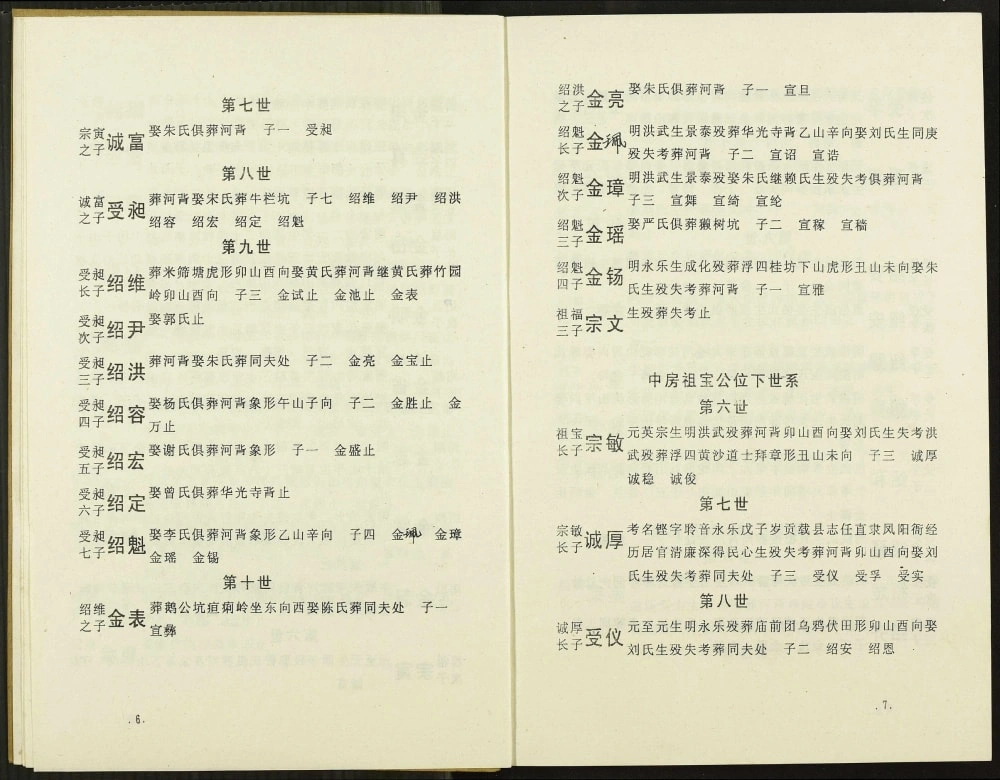 第七世
宗寅之子 诚富 娶朱氏俱葬河背 子一 受昶
第八世
诚富之子 受昶 葬河背娶宋氏葬牛栏坑 子七 绍维 绍尹 绍洪
绍容 绍宏 绍定 绍魁
第九世
受昶长子 绍维 葬米筛塘虎形卯山酉向娶黄氏葬河背继黄氏葬竹园
岭卯山酉向 子三 金试止 金池止 金表
受昶次子 绍尹 娶郭氏止
受昶三子 绍洪 葬河背娶朱氏葬同夫处 子二 金亮 金宝止
受昶四子 绍容 娶杨氏俱葬河背象形午山子向 子二 金胜止 金
万止
受昶五子 绍宏 娶谢氏俱葬河背象形 子一 金盛止
受昶六子 绍定 娶曾氏俱葬华光寺背止
受昶七子 绍魁 娶李氏俱葬河背象形乙山辛向 子四 金珮 金璋
金瑶 金锡
第十世
绍维之子 金表 葬鹅公坑疸痢岭坐东向西娶陈氏葬同夫处 子一
宣彝
.6.
绍洪之子 金亮 娶朱氏俱葬河背 子一 宣旦
绍魁长子 金珮 明洪武生景泰殁葬华光寺背乙山辛向娶刘氏生同庚
殁失考葬河背 子二 宣诏 宣诰
绍魁次子 金璋 明洪武生景泰殁娶朱氏继赖氏生殁失考俱葬河背
子三 宣舞 宣绮 宣纶
绍魁三子 金瑶 娶严氏俱葬獭树坑 子二 宣稼 宣穑
绍魁四子 金钖 明永乐生成化殁葬浮四桂坊下山虎形丑山未向娶朱
氏生殁失考葬河背 子一 宣雅
祖福三子 宗文 生殁葬失考止
中房祖宝公位下世系
第六世
祖宝长子 宗敏 元英宗生明洪武殁葬河背卯山酉向娶刘氏生失考洪
武殁葬浮四黄沙道士拜章形丑山未向 子三 诚厚
诚稳 诚俊
第七世
宗敏长子 诚厚 考名铿字聆音永乐戊子岁贡载县志任直隶凤阳衙经
历居官清廉深得民心生殁失考葬河背卯山酉向娶刘
氏生殁失考葬同夫处 子三 受仪 受孚 受实
第八世
诚厚长子 受仪 元至元生明永乐殁葬庙前团乌鸦伏田形卯山酉向娶
刘氏生殁失考葬同夫处 子二 绍安 绍恩
.7.